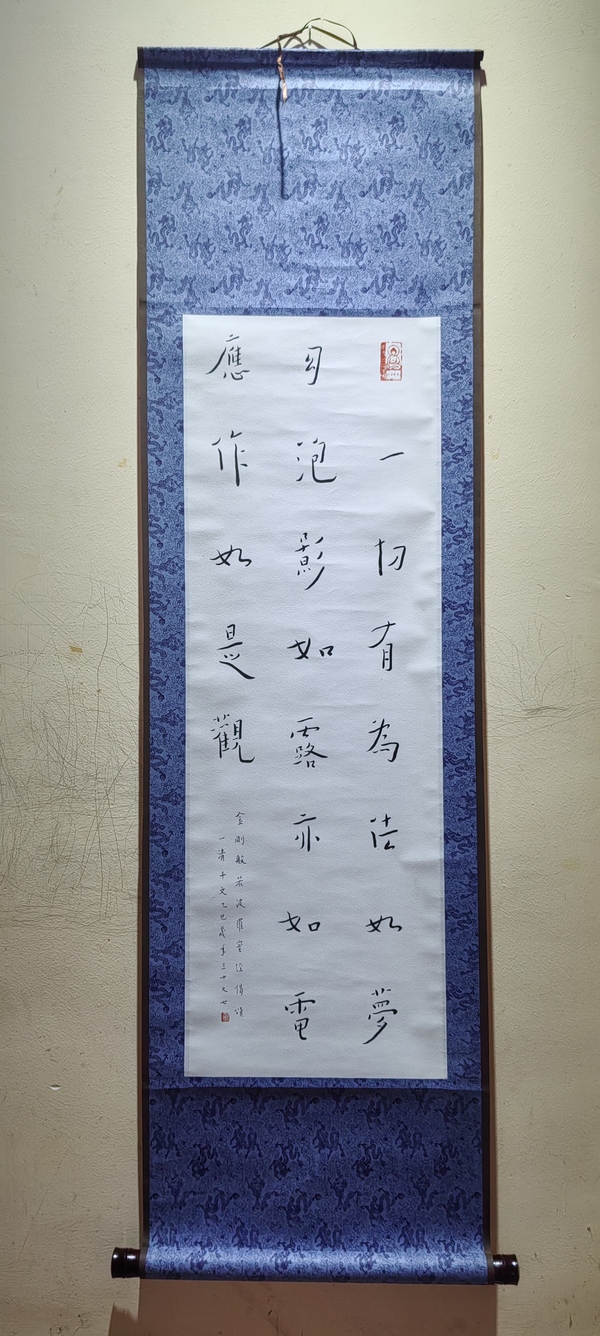 一切有為法如夢
幻泡影如露亦如電
應作如是觀
金剛般若波羅蜜經偈頌
一青 乙巳歲年三十又七